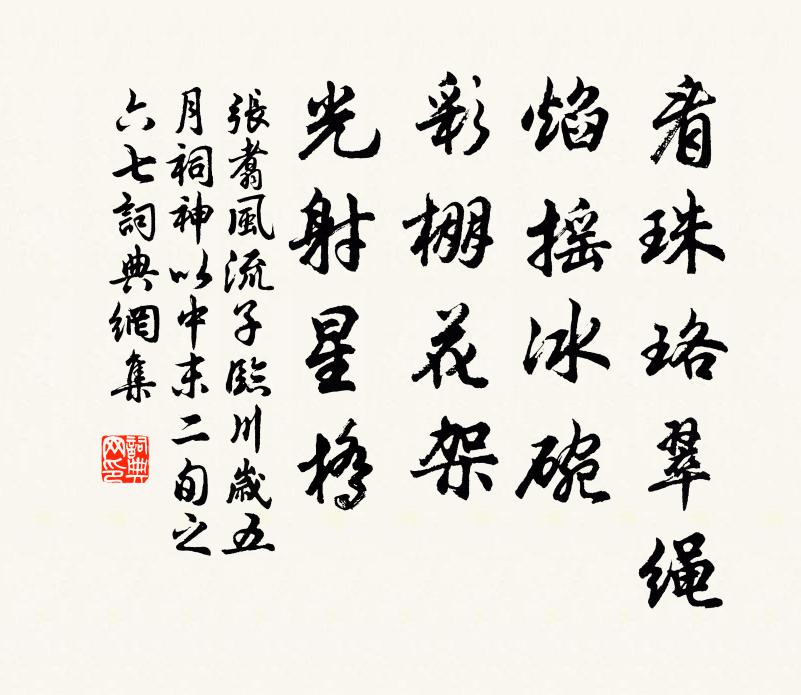 看珠珞翠绳
焰摇冰碗
彩棚花架
光射星桥
張翥風流子臨川歳五
月祠神以中末二旬之
六七詞典網集
詞典网印